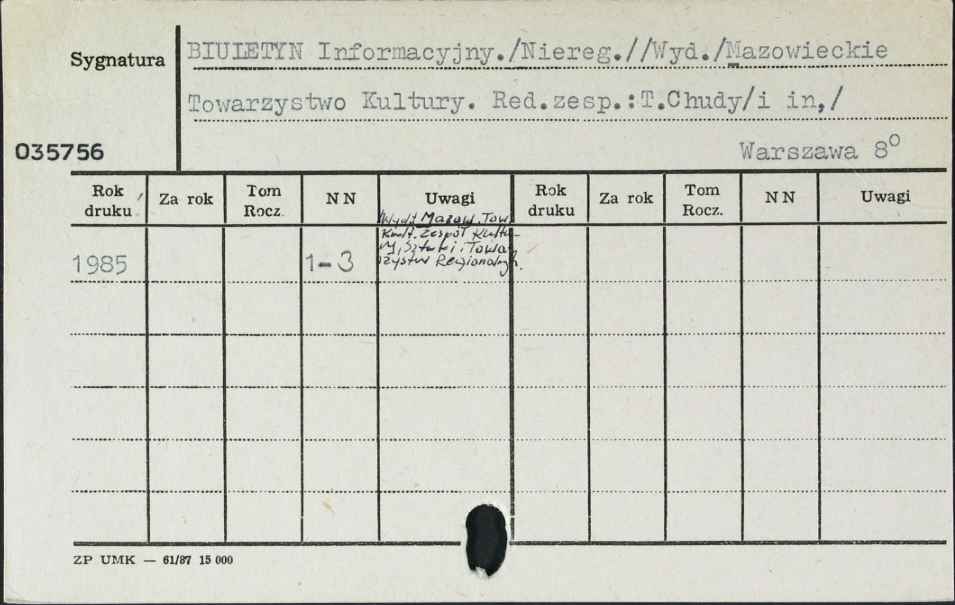 Sygnatura
BIULETYN Informacyjny./Niereg.//Wyd./Mazowieckie
Towarzystwo Kultury. Red.zesp.:T.Chudy/i in,/
035756
Warszawa 8⁰
Rok druku Za rok Tom Rocz. N N Uwagi Rok druku Za rok Tom Rocz. N N Uwagi
Wyd. Mazow. Tow.
Kult. Zespół Kultu-
ry, Sztuki i Towa-
1985 1-3 rzystw Regionalnych.
ZP UMK — 61/87 15 000